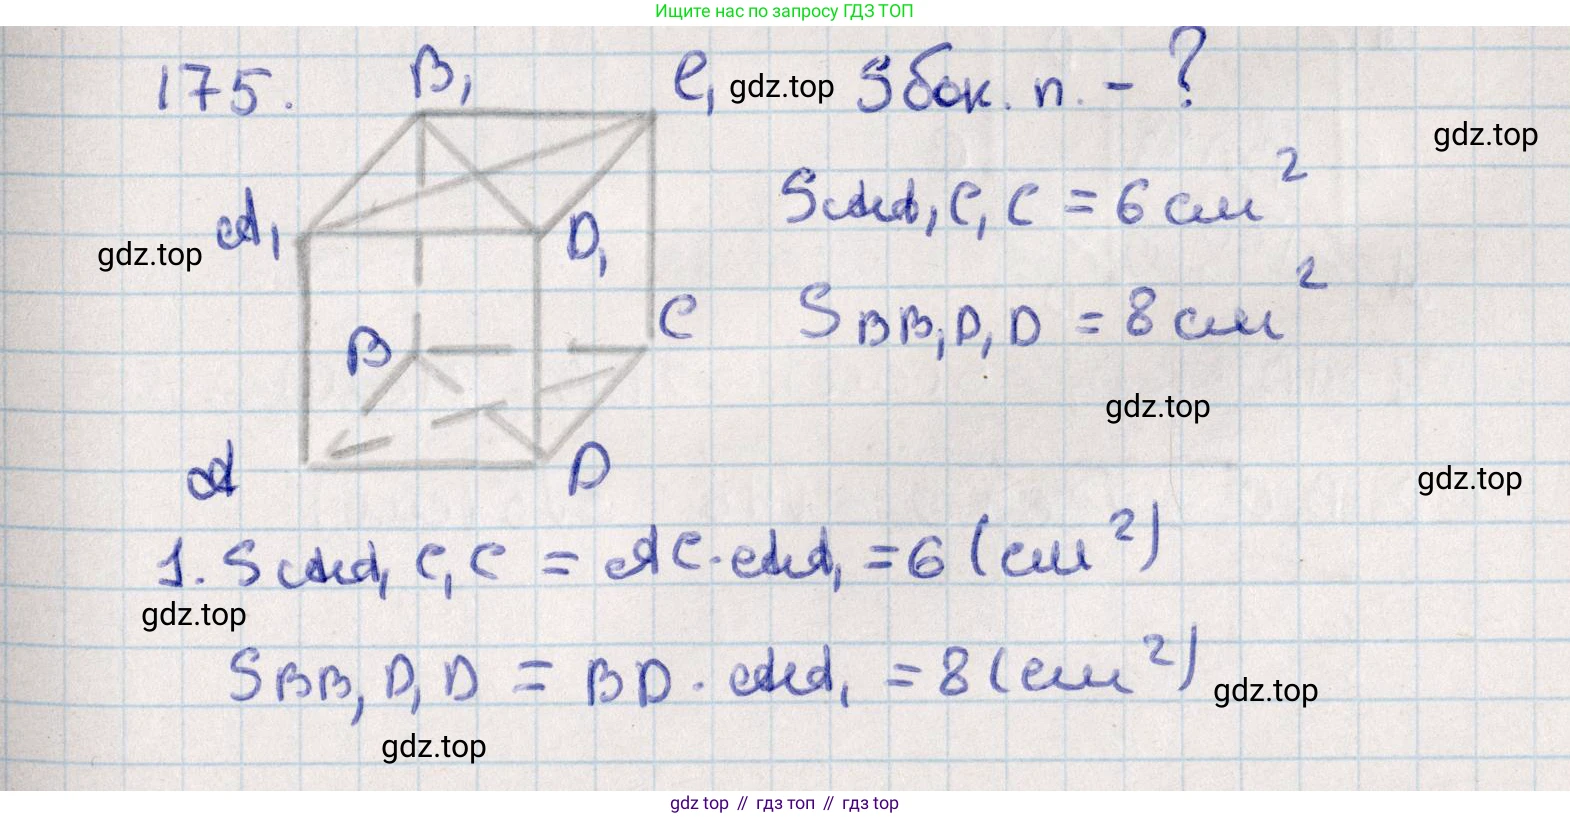 Ищите нас по запросу ГДЗ ТОП
175. B₁ C₁ gdz.top Sбок. п. - ?
gdz.top
SAA₁C₁C = 6 см²
A₁ D₁
gdz.top
SBB₁D₁D = 8 см²
B C
gdz.top
A D
gdz.top
1. SAA₁C₁C = AC·AA₁ = 6 (см²)
gdz.top
SBB₁D₁D = BD·AA₁ = 8 (см²)
gdz.top
gdz.top
gdz top // гдз топ // гдз top